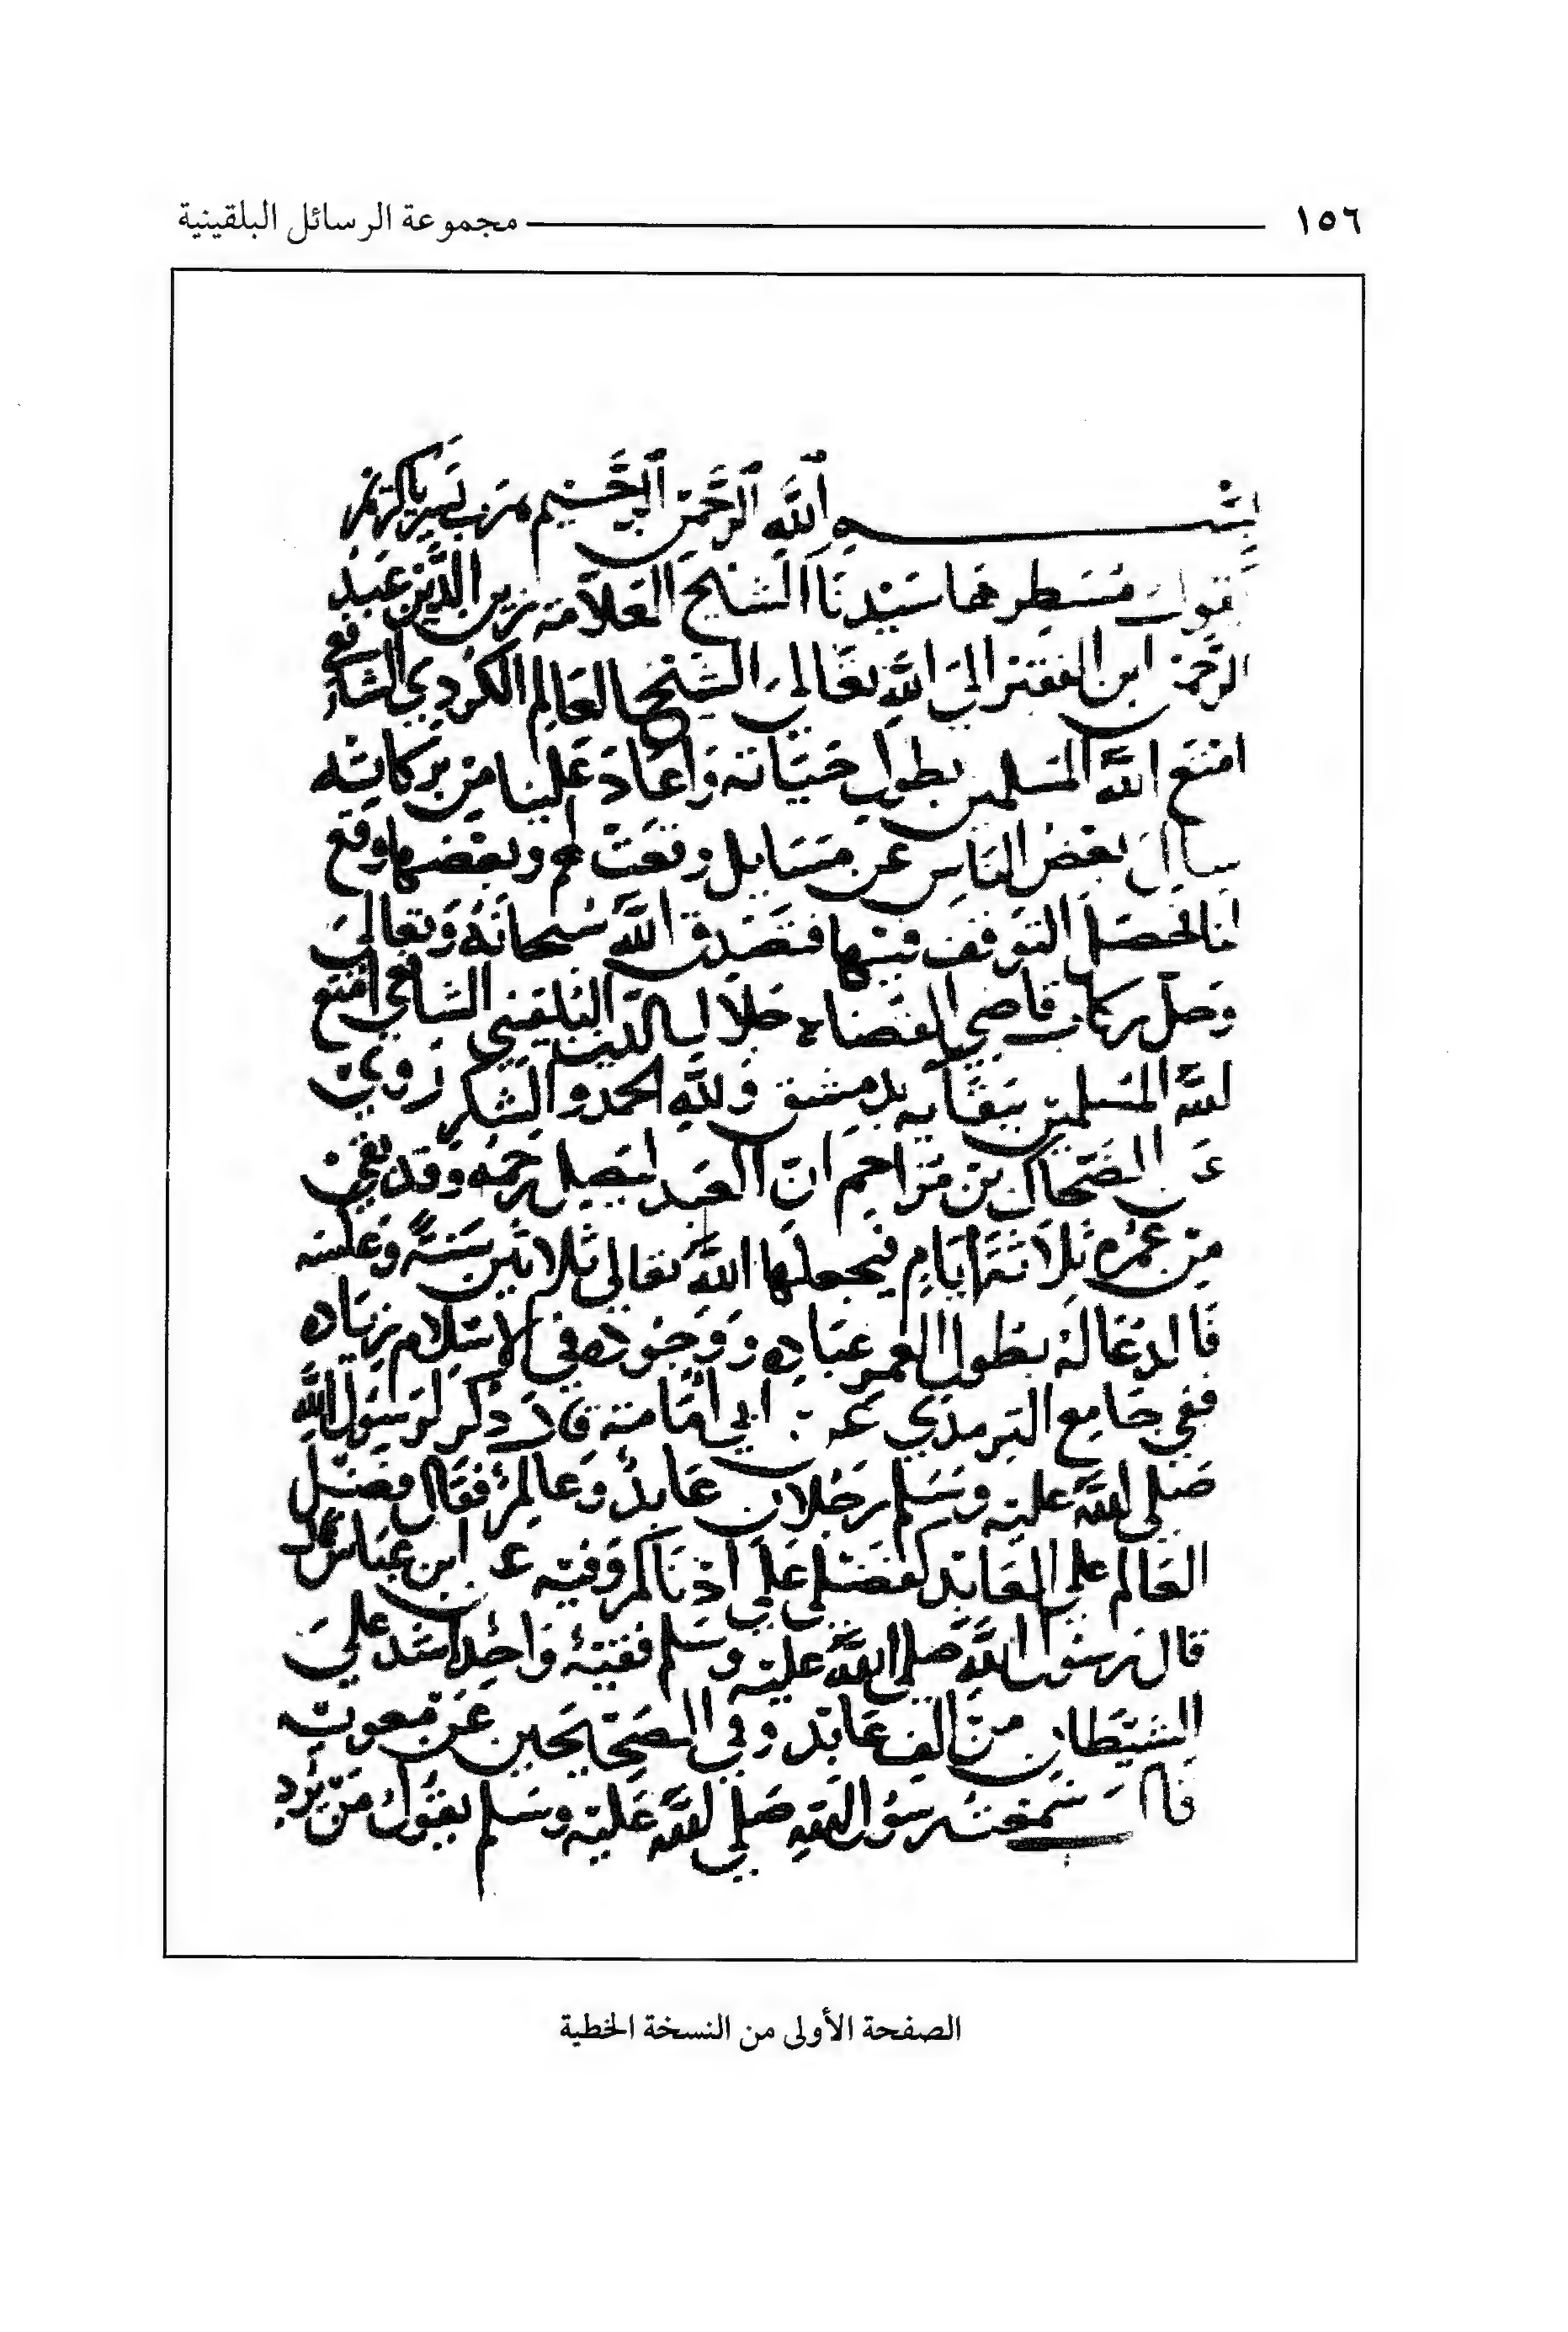 ١٥٦ مجموعة الرسائل البلقينية
بسم الله الرحمن الرحيم رب يسر ياكريم
يقول مسطرها سيدنا الشيخ العلامة زين الدين عبد
الرحمن ابن الفقير الى الله تعالى الشيخ العالم الكردي الشافعي
امتع الله المسلمين بطول حياته واعاد علينا من بركاته
سأل بعض الناس عن مسايل وقعت لهم وبعضها وقع
لنا لحصل التوقف فيها فتصدق الله سبحانه وتعالى
وصل ركاب قاضي القضاه جلال الدين البلقيني الشافعي امتع
الله المسلمين ببقايه بدمشق ولله الحمد والشكر روي
عن الضحاك بن مزاحم ان العبد ليصل رحمه وقد بقي
من عمره ثلاثة ايام فيجعلها الله تعالى ثلاثين سنة وعكسه
فالدعا له بطول العمر عباده ووجوده في الاسلام زياده
ففي جامع الترمذي عن ابي امامة قال ذكر لرسول الله
صلى الله عليه وسلم رجلان عابد وعالم فقال فضل
العالم على العابد كفضلي على ادناكم وفيه عن ابن عباس قال
قال رسول الله صلى الله عليه وسلم فقيه واحد اشد على
الشيطان من الف عابد وفي الصحيحين عن معوية
قال سمعت رسول الله صلى الله عليه وسلم يقول من يرد
الصفحة الأولى من النسخة الخطية